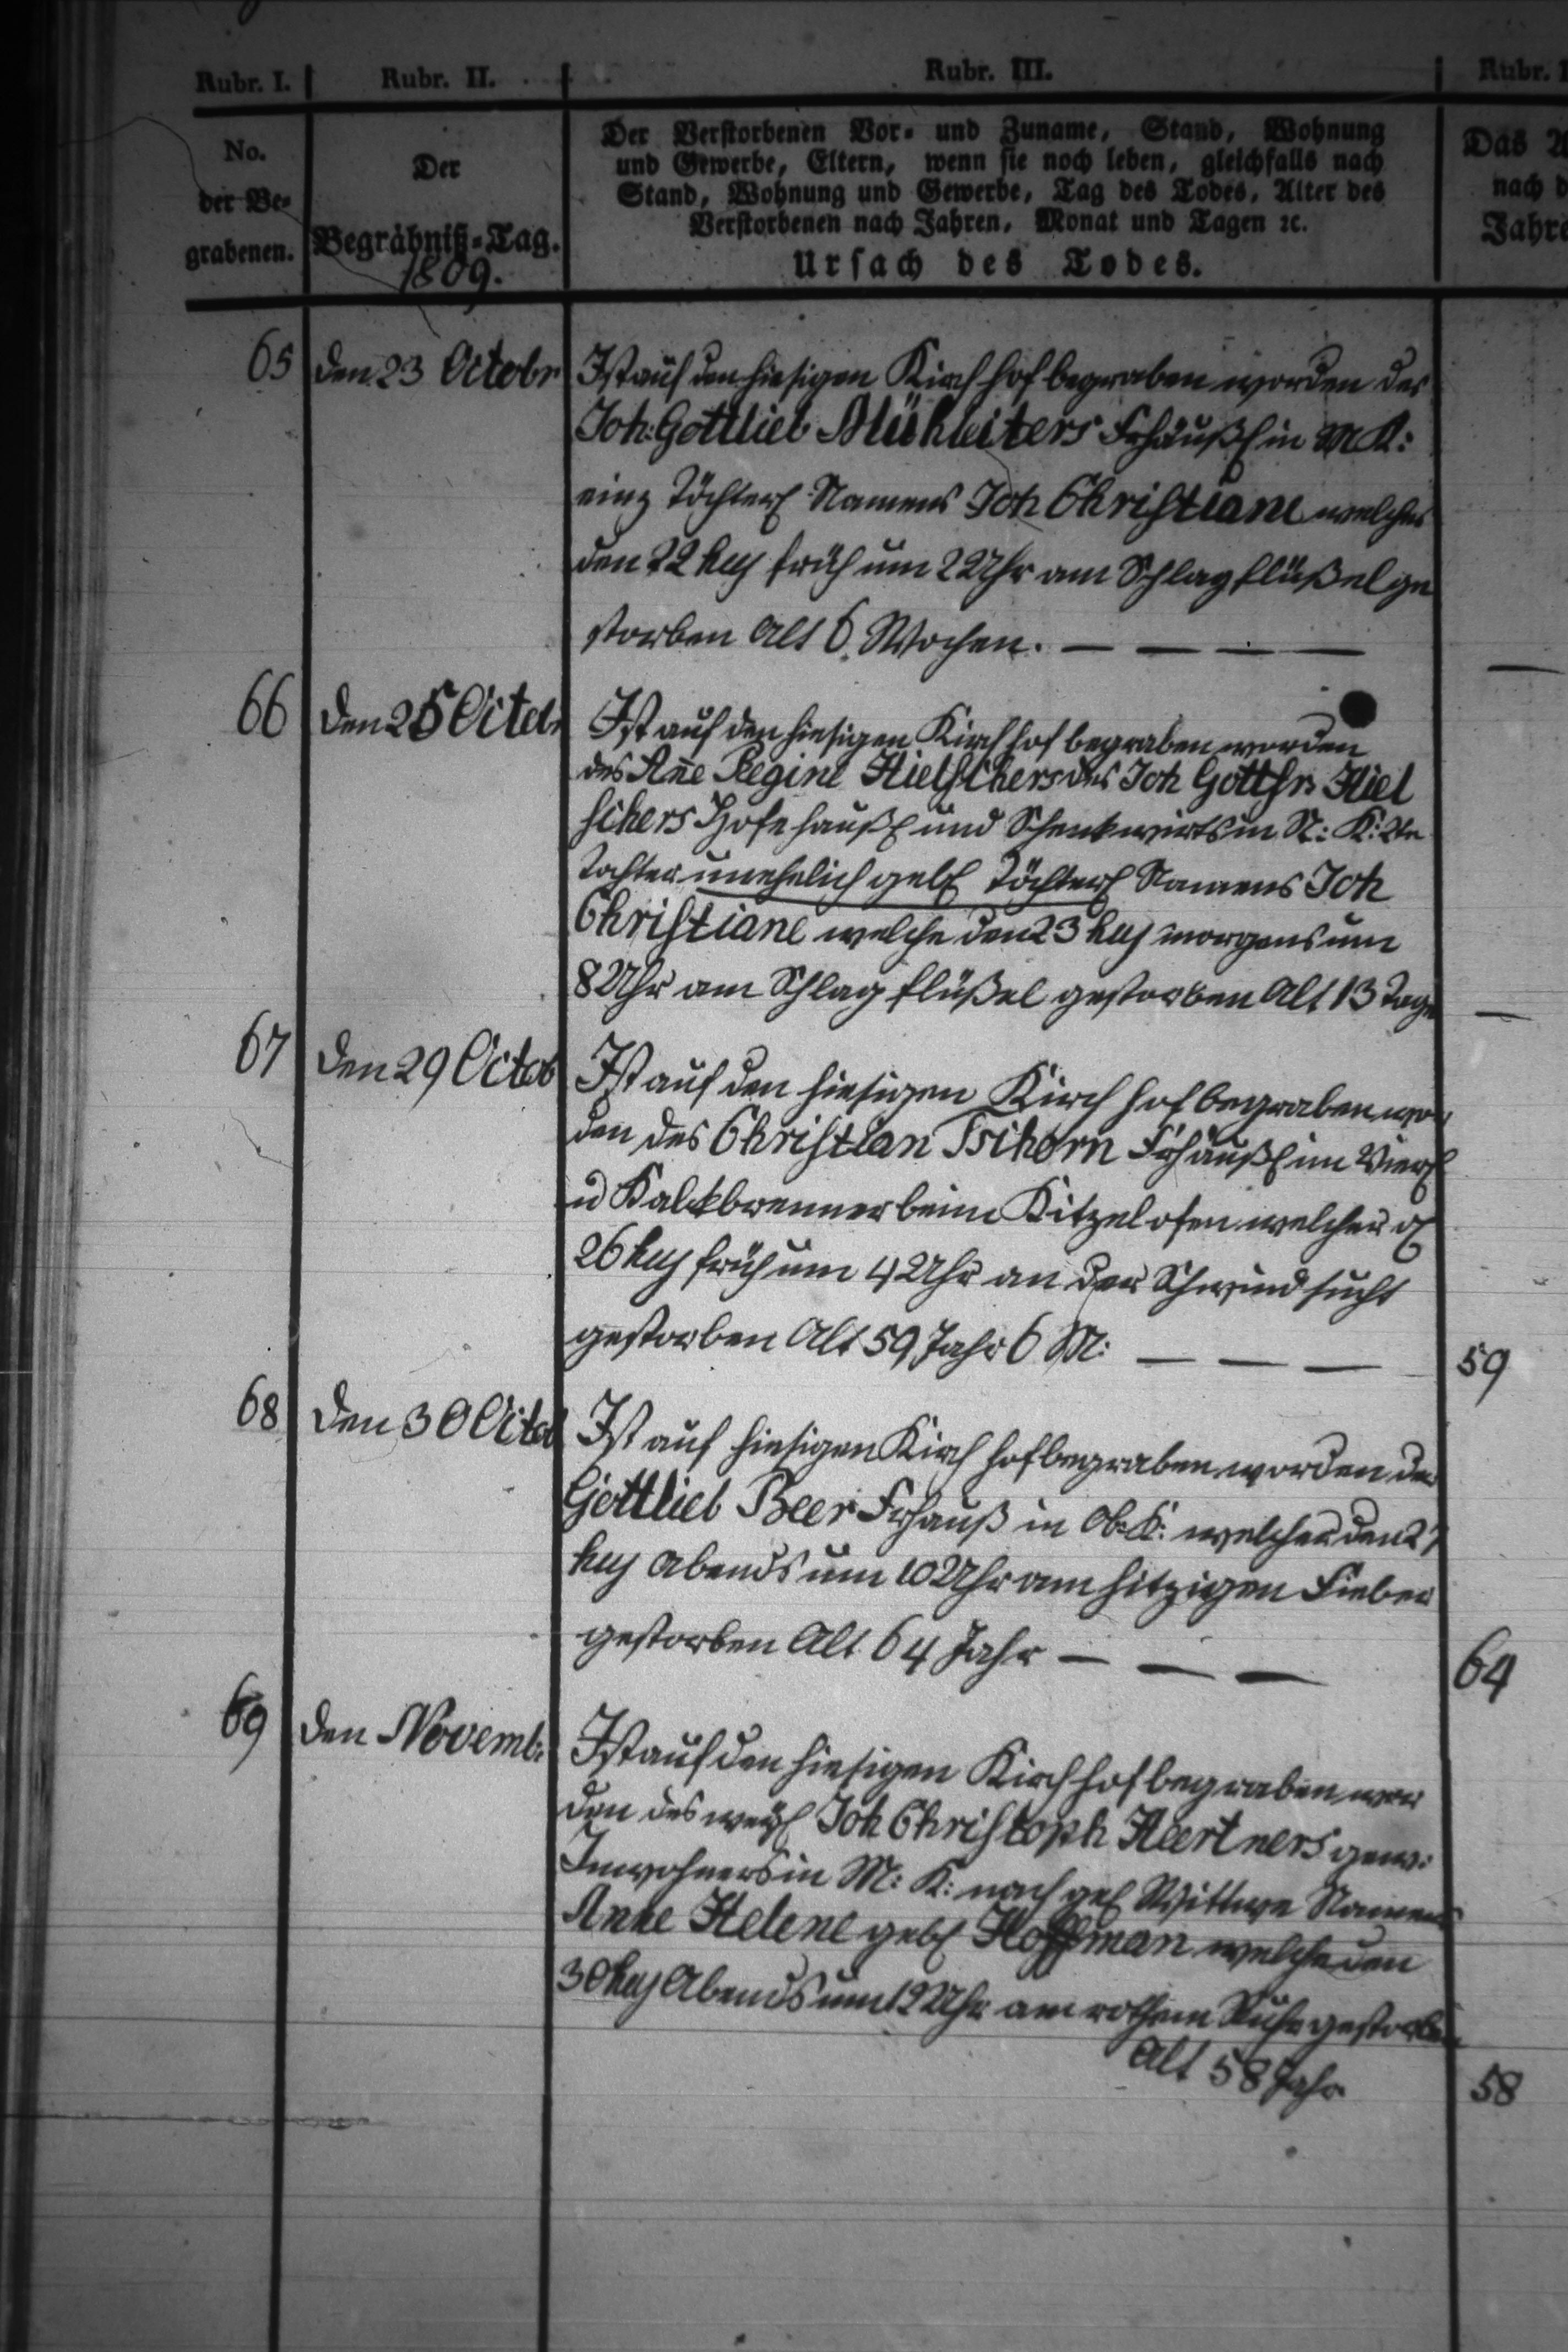 Rubr. I.
Rubr. II.
Rubr. III.
Rubr.
No.
der Be-
grabenen.
Der
Begräbniß-Tag.
1809.
Der Verstorbenen Vor- und Zuname, Stand, Wohnung
und Gewerbe, Eltern, wenn sie noch leben, gleichfalls nach
Stand, Wohnung und Gewerbe, Tag des Todes, Alter des
Verstorbenen nach Jahren, Monat und Tagen ꝛc.
Ursach des Todes.
Das
nach
Jahre
65
den 23 Octobr
Ist auf den hiesigen Kirchhof begraben worden des
Joh: Gottlieb Mühleiters Frhäußl in M K:
einz Töchterl Namens Joh Christiane welches
den 22 huj früh um 2 Uhr am Schlagflüßel ge
storben Alt 6 Wochen. — — — —
66
den 25 Octobr
Ist auf den hiesigen Kirchhof begraben worden
des Ane Regine Hielschers des Joh Gottfr. Hiel
schers Hofehäußl und Schenkwirts in N: K: 2te
Tochter unehelich gebl Töchterl Namens Joh
Christiane welche den 23 huj morgens um
8 Uhr am Schlagflüßel gestorben Alt 13 Tage
67
den 29 Octob
Ist auf den hiesigen Kirchhof begraben wor
den des Christian Tschorn Frhäußl im
u Kalckbrenner beim Kitzelofen welcher d
26 huj früh um 4 Uhr an der Schwindsucht
gestorben Alt 59 Jahr 6 M: — — —
59
68
den 30 Octob
Ist auf hiesigen Kirchhof begraben worden der
Gottlieb Beer Frhäuß in Ob: K: welcher den 27
huj Abends um 10 Uhr am hitzigen Fieber
gestorben Alt 64 Jahr — — —
64
69
den Novemb:
Ist auf den hiesigen Kirchhof begraben wor
den des weyl Joh Christoph Heertners gew:
Inwohners in M: K: nachgel Wittwe Namens
Anne Helene gebl Hoffman welche den
30 huj Abends um 12 Uhr am rothem Ruhr gestorben
Alt 58 Jahr
58